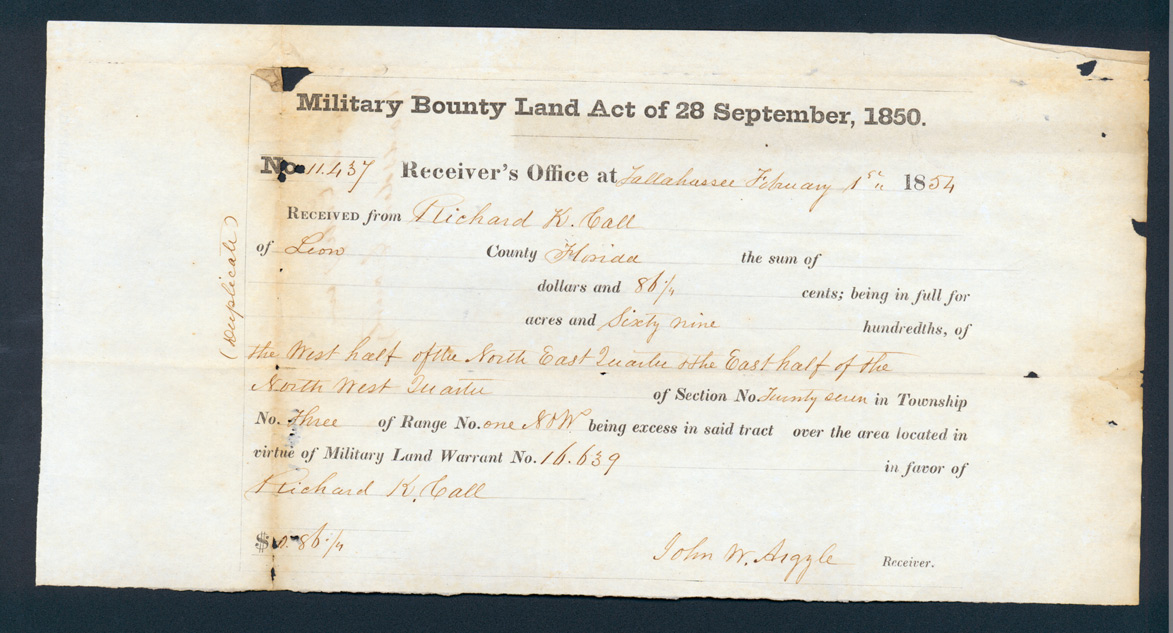 Military Bounty Land Act of 28 September, 1850.
No. 11.437 Receiver's Office at Tallahassee February 1st 1854
RECEIVED from Richard K. Call
of Leon County Florida the sum of
dollars and 86 1/4 cents; being in full for
acres and Sixty nine hundredths, of
the West half of the North East Quarter & the East half of the
North West Quarter of Section No. Twenty seven in Township
No. Three of Range No. one N & W being excess in said tract over the area located in
virtue of Military Land Warrant No. 16.639 in favor of
Richard K. Call
$ 86 1/4
John W. Argyle Receiver.
(Duplicate)